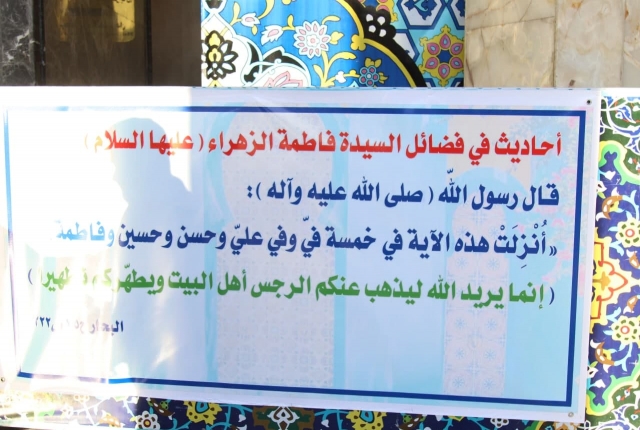 أحاديث في فضائل السيدة فاطمة الزهراء ( عليها السلام )
قال رسول الله ( صلى الله عليه وآله ) :
« أُنْزِلَتْ هذه الآية في خمسة فيّ وفي عليّ وحسن وحسين وفاطمة
( إنما يريد الله ليذهب عنكم الرجس أهل البيت ويطهّركم تطهيرا )
البحار